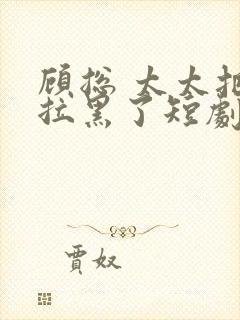 顾总 太太把
拉黑了短劇
賈奴